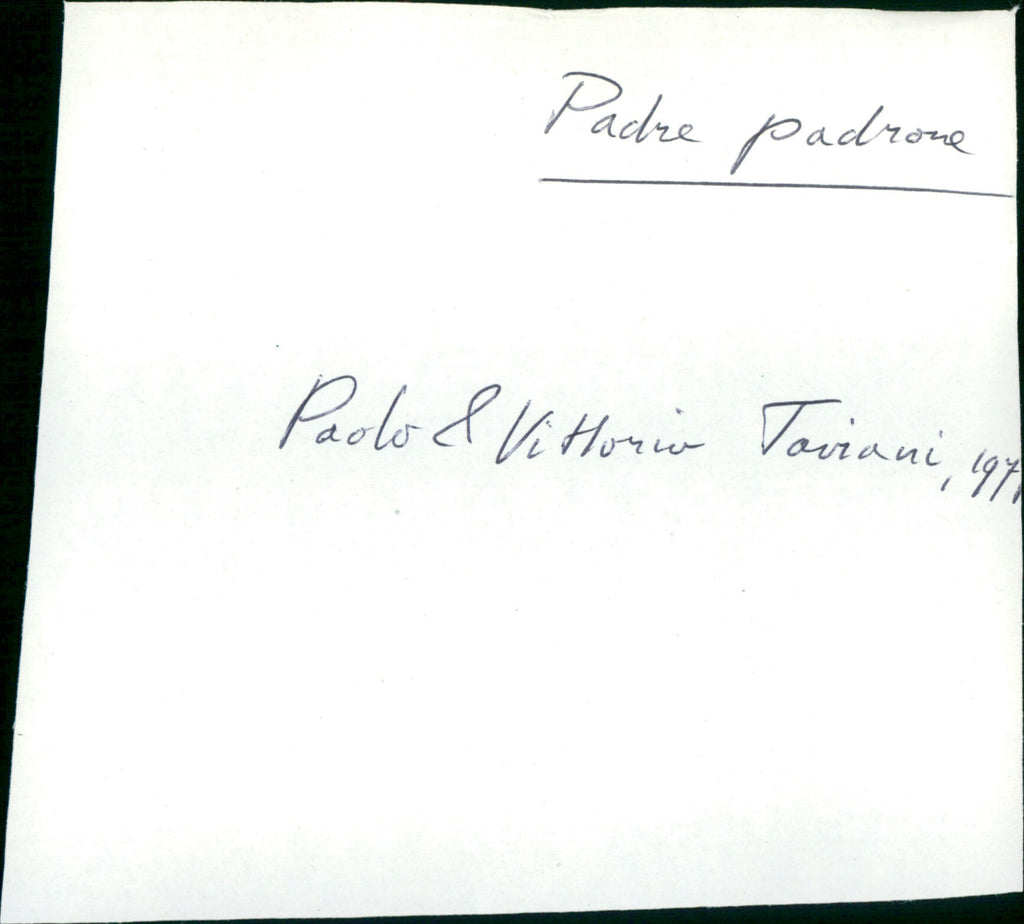 Padre padrone
Paolo & Vittorio Taviani, 1977